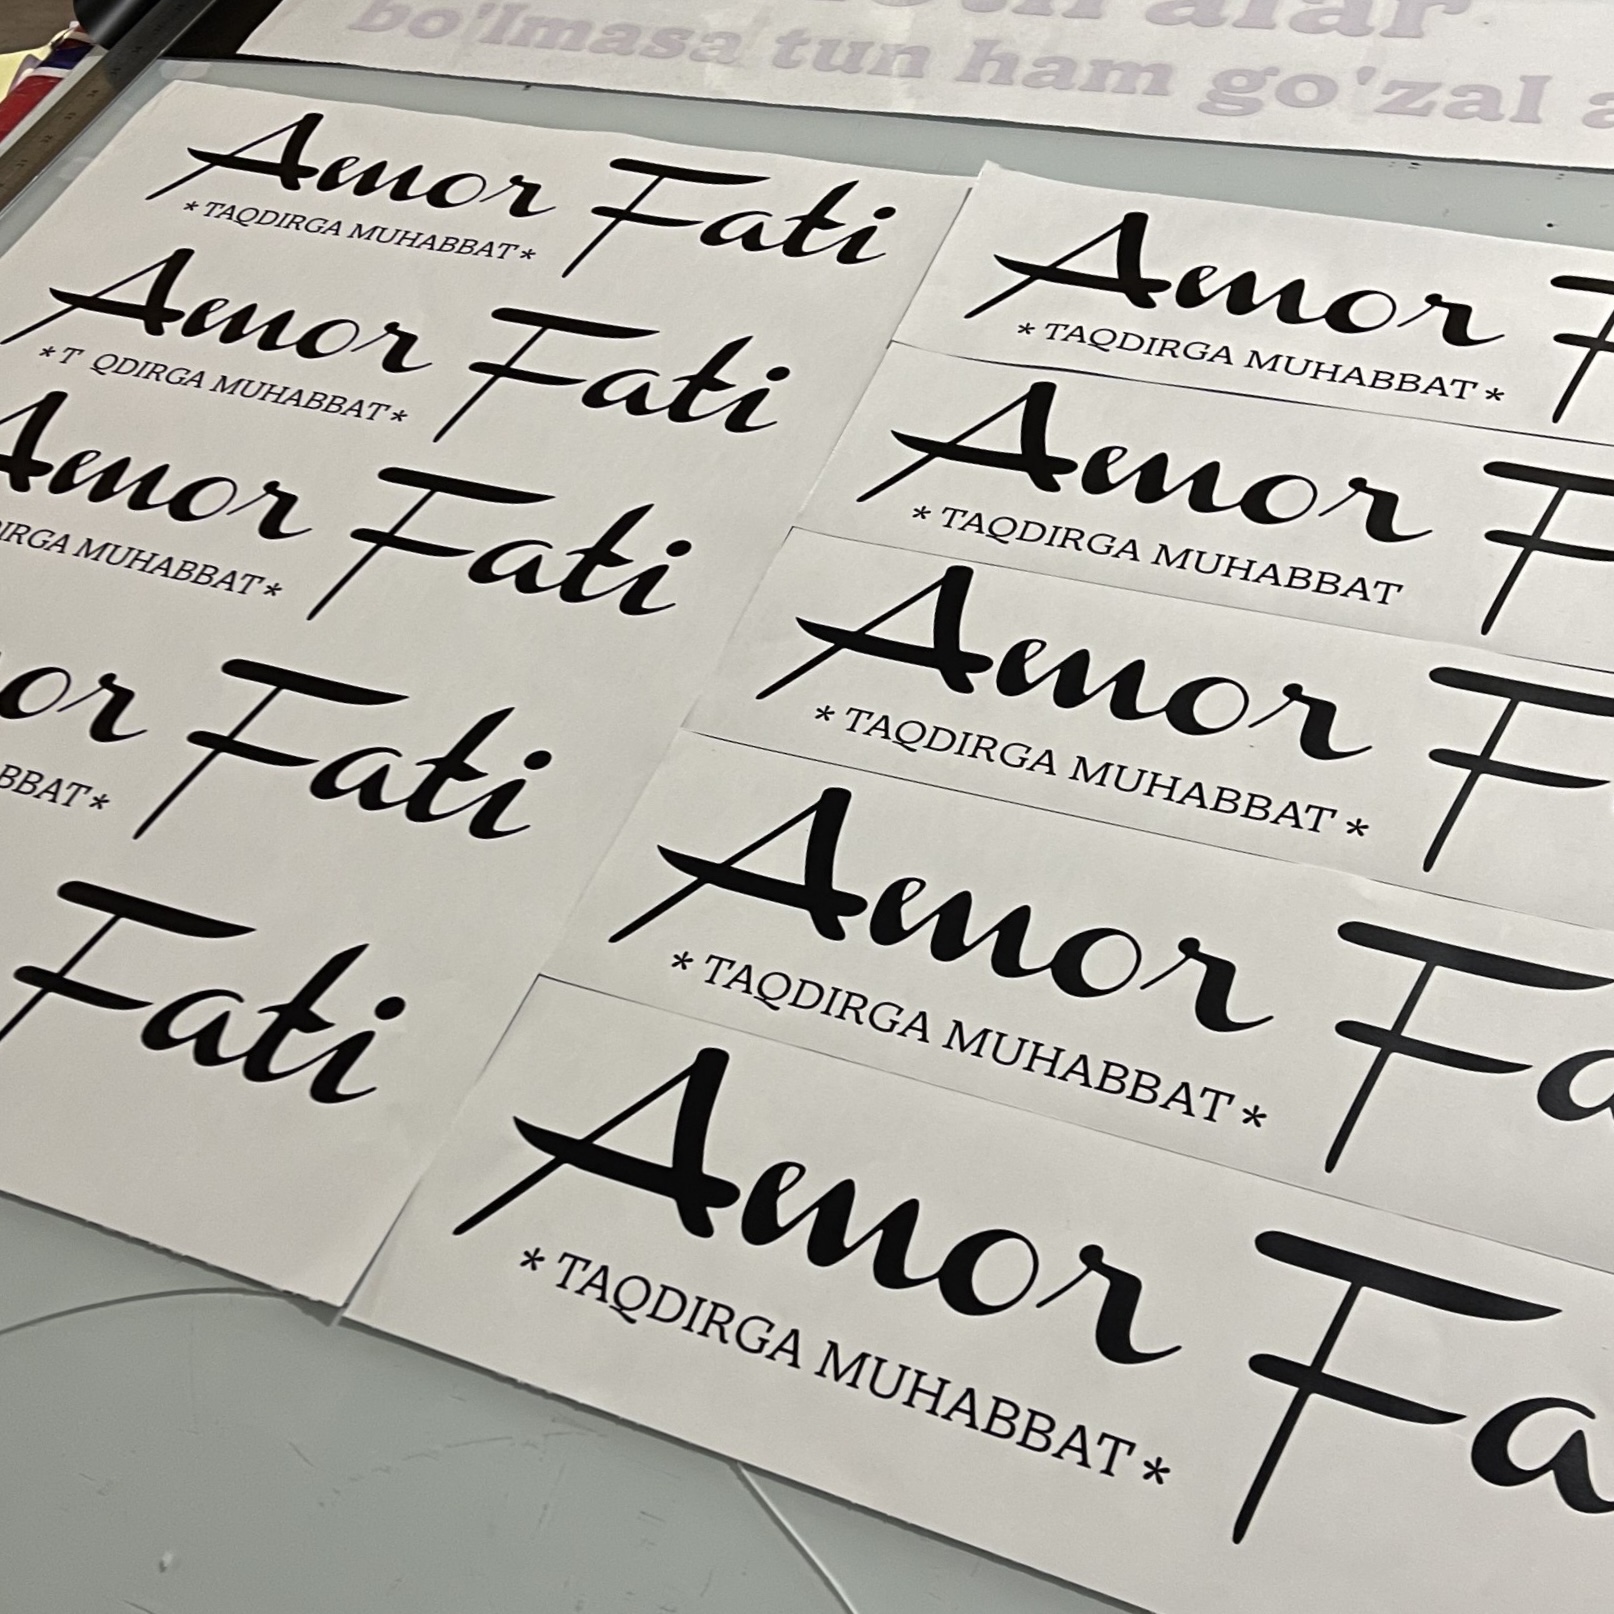 bo'lmasa tun ham go'zal
Amor Fati
* TAQDIRGA MUHABBAT *
Amor Fati
* T QDIRGA MUHABBAT *
Amor Fati
MUHABBAT *
Fati
Fati
Amor
* TAQDIRGA MUHABBAT *
Amor
* TAQDIRGA MUHABBAT
Amor
* TAQDIRGA MUHABBAT *
Amor Fa
* TAQDIRGA MUHABBAT *
Amor Fa
* TAQDIRGA MUHABBAT *